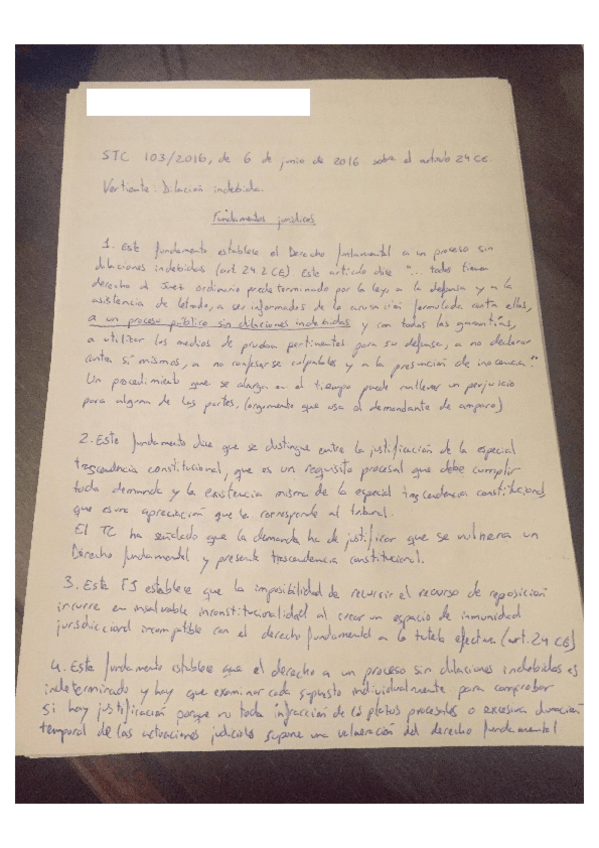 STC 103/2016, de 6 de junio de 2016 sobre el artículo 24 CE
Vertiente: Dilación indebida.
Fundamentos jurídicos
1. Este fundamento establece el Derecho fundamental a un proceso sin
dilaciones indebidas (art 24.2 CE) Este artículo dice "... todos tienen
derecho al Juez ordinario predeterminado por la ley, a la defensa y a la
asistencia de letrado, a ser informados de la acusación formulada contra ellos,
a un proceso público sin dilaciones indebidas y con todas las garantías,
a utilizar los medios de prueba pertinentes para su defensa, a no declarar
contra sí mismos, a no confesarse culpables y a la presunción de inocencia."
Un procedimiento que se alarga en el tiempo puede conllevar un perjuicio
para alguna de las partes, (argumento que usa el demandante de amparo)
2. Este fundamento dice que se distingue entre la justificación de la especial
trascendencia constitucional, que es un requisito procesal que debe cumplir
toda demanda y la existencia misma de la especial trascendencia constitucional,
que es una apreciación que le corresponde al tribunal.
El TC ha señalado que la demanda ha de justificar que se vulnera un
Derecho fundamental y presente trascendencia constitucional.
3. Este FJ establece que la imposibilidad de recurrir el recurso de reposición
incurre en insalvable inconstitucionalidad al crear un espacio de inmunidad
jurisdiccional incompatible con el derecho fundamental a la tutela efectiva (art. 24 CE)
4. Este fundamento establece que el derecho a un proceso sin dilaciones indebidas es
indeterminado y hay que examinar cada supuesto individualmente para comprobar
si hay justificación porque no toda infracción de los plazos procesales o excesiva duración
temporal de las actuaciones judiciales supone una vulneración del derecho fundamental